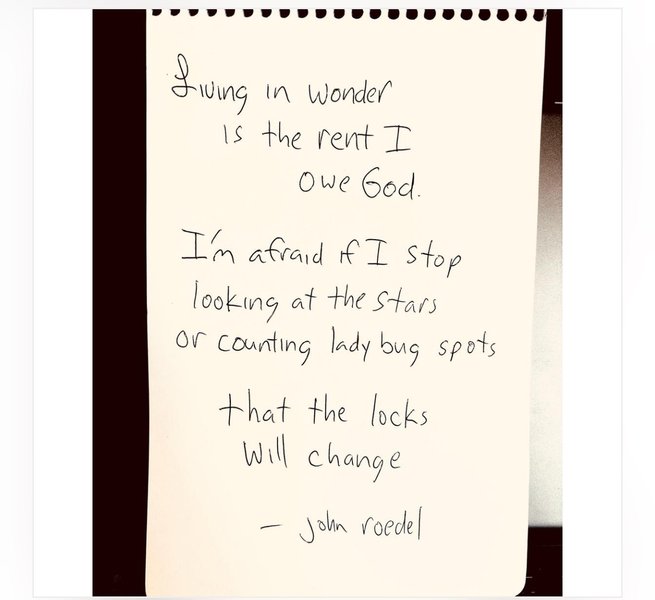 Living in wonder
is the rent I
owe God.
I'm afraid if I stop
looking at the stars
or counting lady bug spots
that the locks
will change
- john roedel